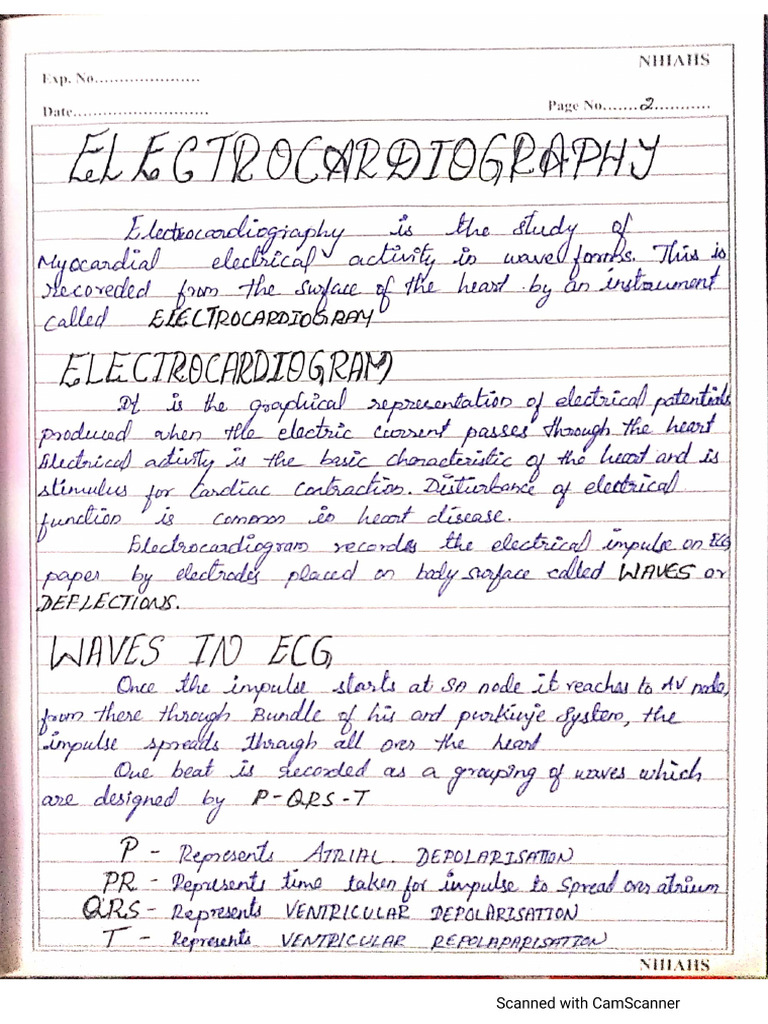 NHIAHS
Exp. No.....................
Date...........................
Page No.......2...........
ELECTROCARDIOGRAPHY
Electrocardiography is the study of
Myocardial electrical activity in wave forms. This is
recoreded from the surface of the heart by an instrument
called ELECTROCARDIOGRAM
ELECTROCARDIOGRAM
It is the graphical representation of electrical potentials
produced when the electric current passes through the heart
Electrical activity is the basic characteristic of the heart and is
stimulus for Cardiac contraction. Disturbance of electrical
function is common in heart disease.
Electrocardiogram records the electrical impulse on ECG
paper by electrodes placed on body surface called WAVES or
DEFLECTIONS.
WAVES IN ECG
Once the impulse starts at SA node it reaches to AV node,
from there through Bundle of his and purkinje System, the
impulse spreads through all over the heart
One beat is recorded as a grouping of waves which
are designed by P-QRS-T
P - Represents ATRIAL DEPOLARISATION
PR - Represents time taken for impulse to spread over atrium
QRS - Represents VENTRICULAR DEPOLARISATION
T - Represents VENTRICULAR REPOLAPARISATION
NHIAHS
Scanned with CamScanner